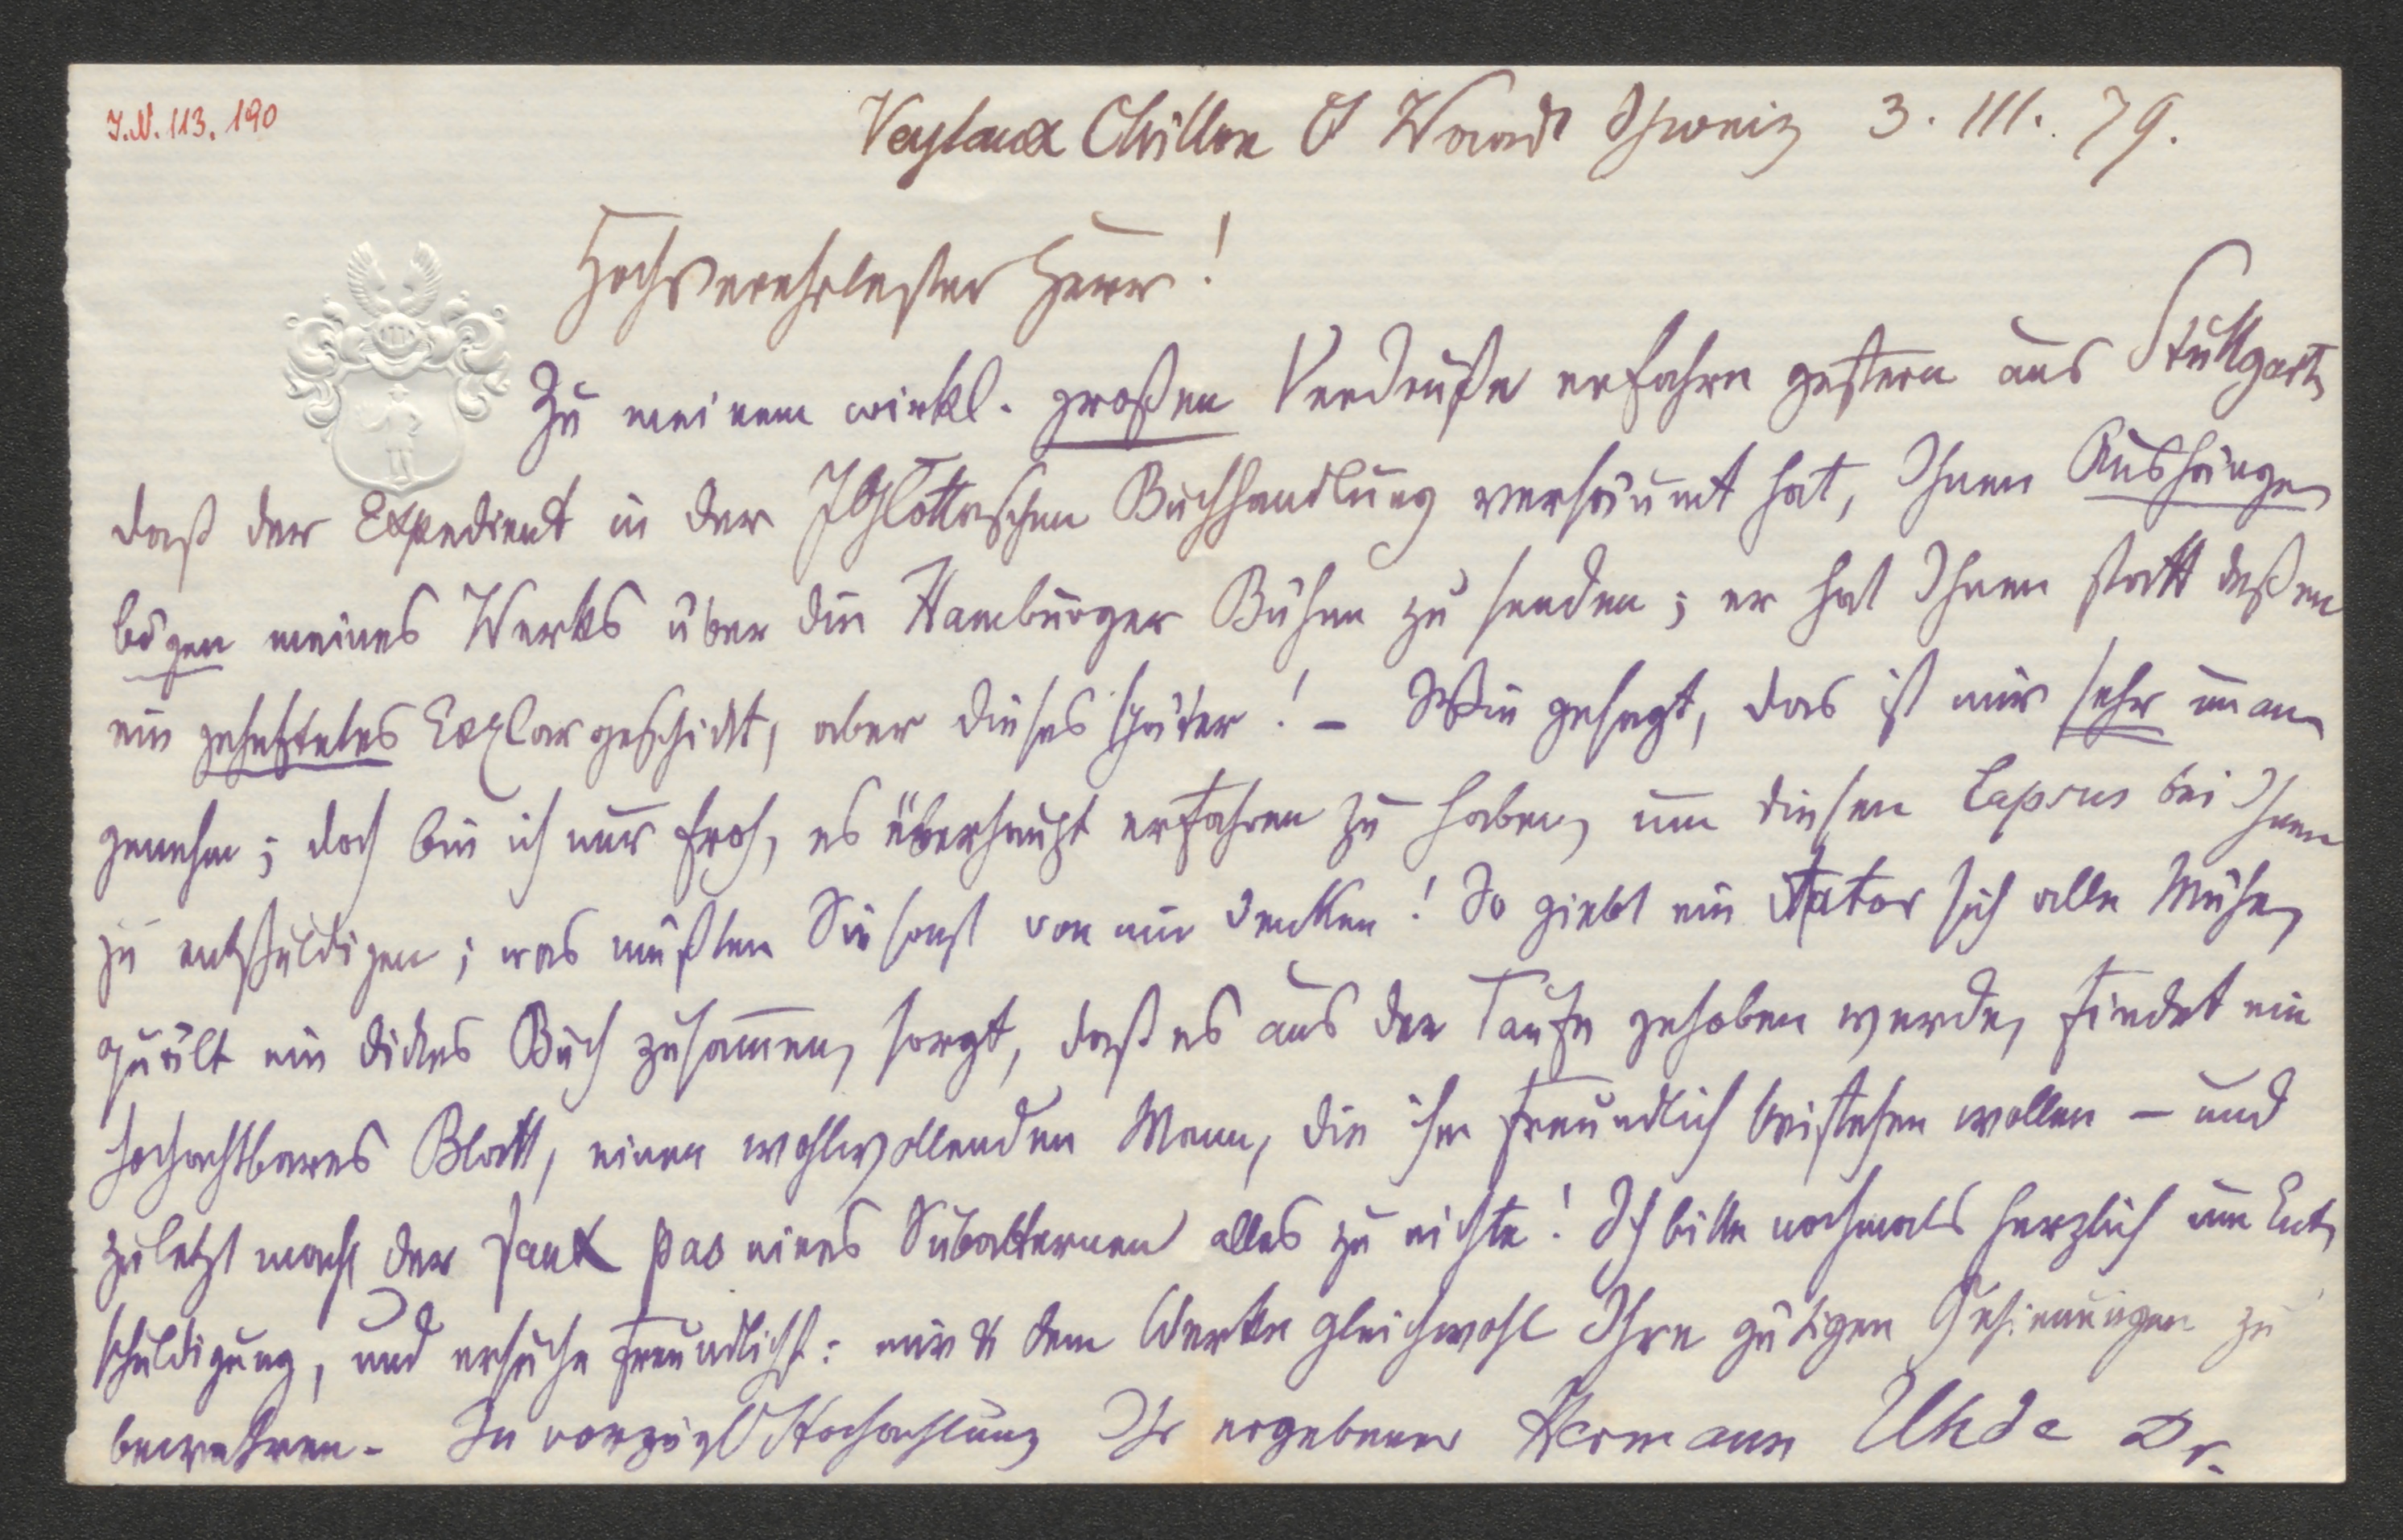 J.N. 113.190
Veytaux Chillon Ct Waadt Schweiz 3. III. 79.
Hochverehrtester Herr!
Zu meinem wirkl. großen Verdruße erfahre gestern aus Stuttgart,
daß der Expedient in der JGCottaschen Buchhandlung versäumt hat, Ihnen Aushänge
bogen meines Werks über die Hamburger Bühne zu senden; er hat Ihnen statt deßen
ein geheftetes Explar geschickt, aber dieses später! – Wie gesagt, das ist mir sehr unan
genehm; doch bin ich nur froh, es überhaupt erfahren zu haben, um diesen Lapsus bei Ihnen
zu entschuldigen; was müßten Sie sonst von mir denken! So giebt ein Autor sich alle Mühe,
quält ein dickes Buch zusammen, sorgt, daß es aus der Taufe gehoben werde, findet ein
hochachtbares Blatt, einen wohlwollenden Mann, die ihm freundlich beistehen wollen – und
zuletzt macht der faux pas eines Subalternen alles zu nichte! Ich bitte nochmals herzlich um Ent
schuldigung, und ersuche freundlichst: mir & dem Werke gleichwohl Ihre gütigen Gesinnungen zu
bewahren. In vorzügl Hochachtung Ihr ergebener Hermann Uhde Dr.